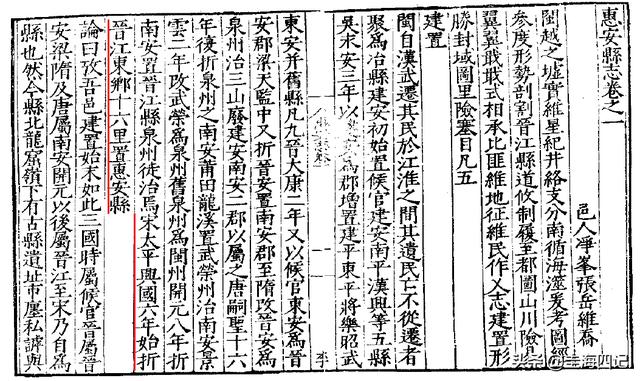 惠安縣志卷之一
邑人淨峯張岳維喬
閩越之墟實維星紀井絡支分南循海澨爰考圖經
參度形勢剖割晉江縣道攸制履至都圖山川險易
翼翼戢戢式相承比匪維地征維民作乂志建置形
勝封域圖里險塞目凡五
建置
閩自漢武遷其民於江淮之間其遺民亡不從遷者
聚爲冶縣建安初始置候官建安南平漢興等五縣
吳永安三年以爲郡增置建平東平將樂昭武
東安并舊縣凡九晉大康二年又以候官東安爲晉
安郡梁天監中又折晉安置南安郡至隋改晉安爲
泉州治三山廢建安南安二郡以屬之唐嗣聖十六
年復折泉州之南安莆田龍溪置武榮州治南安景
雲二年改武榮爲泉州舊泉州爲閩州開元八年折
南安置晉江縣泉州徙治焉宋太平興國六年始折
晉江東鄉十六里置惠安縣
論曰攷吾邑建置始末如此三國時屬候官晉屬晉
安梁隋及唐屬南安開元以後屬晉江至宋乃自爲
縣也然今縣北龍窟嶺下有古縣遺址市廛私譁與
头条@壬海四记